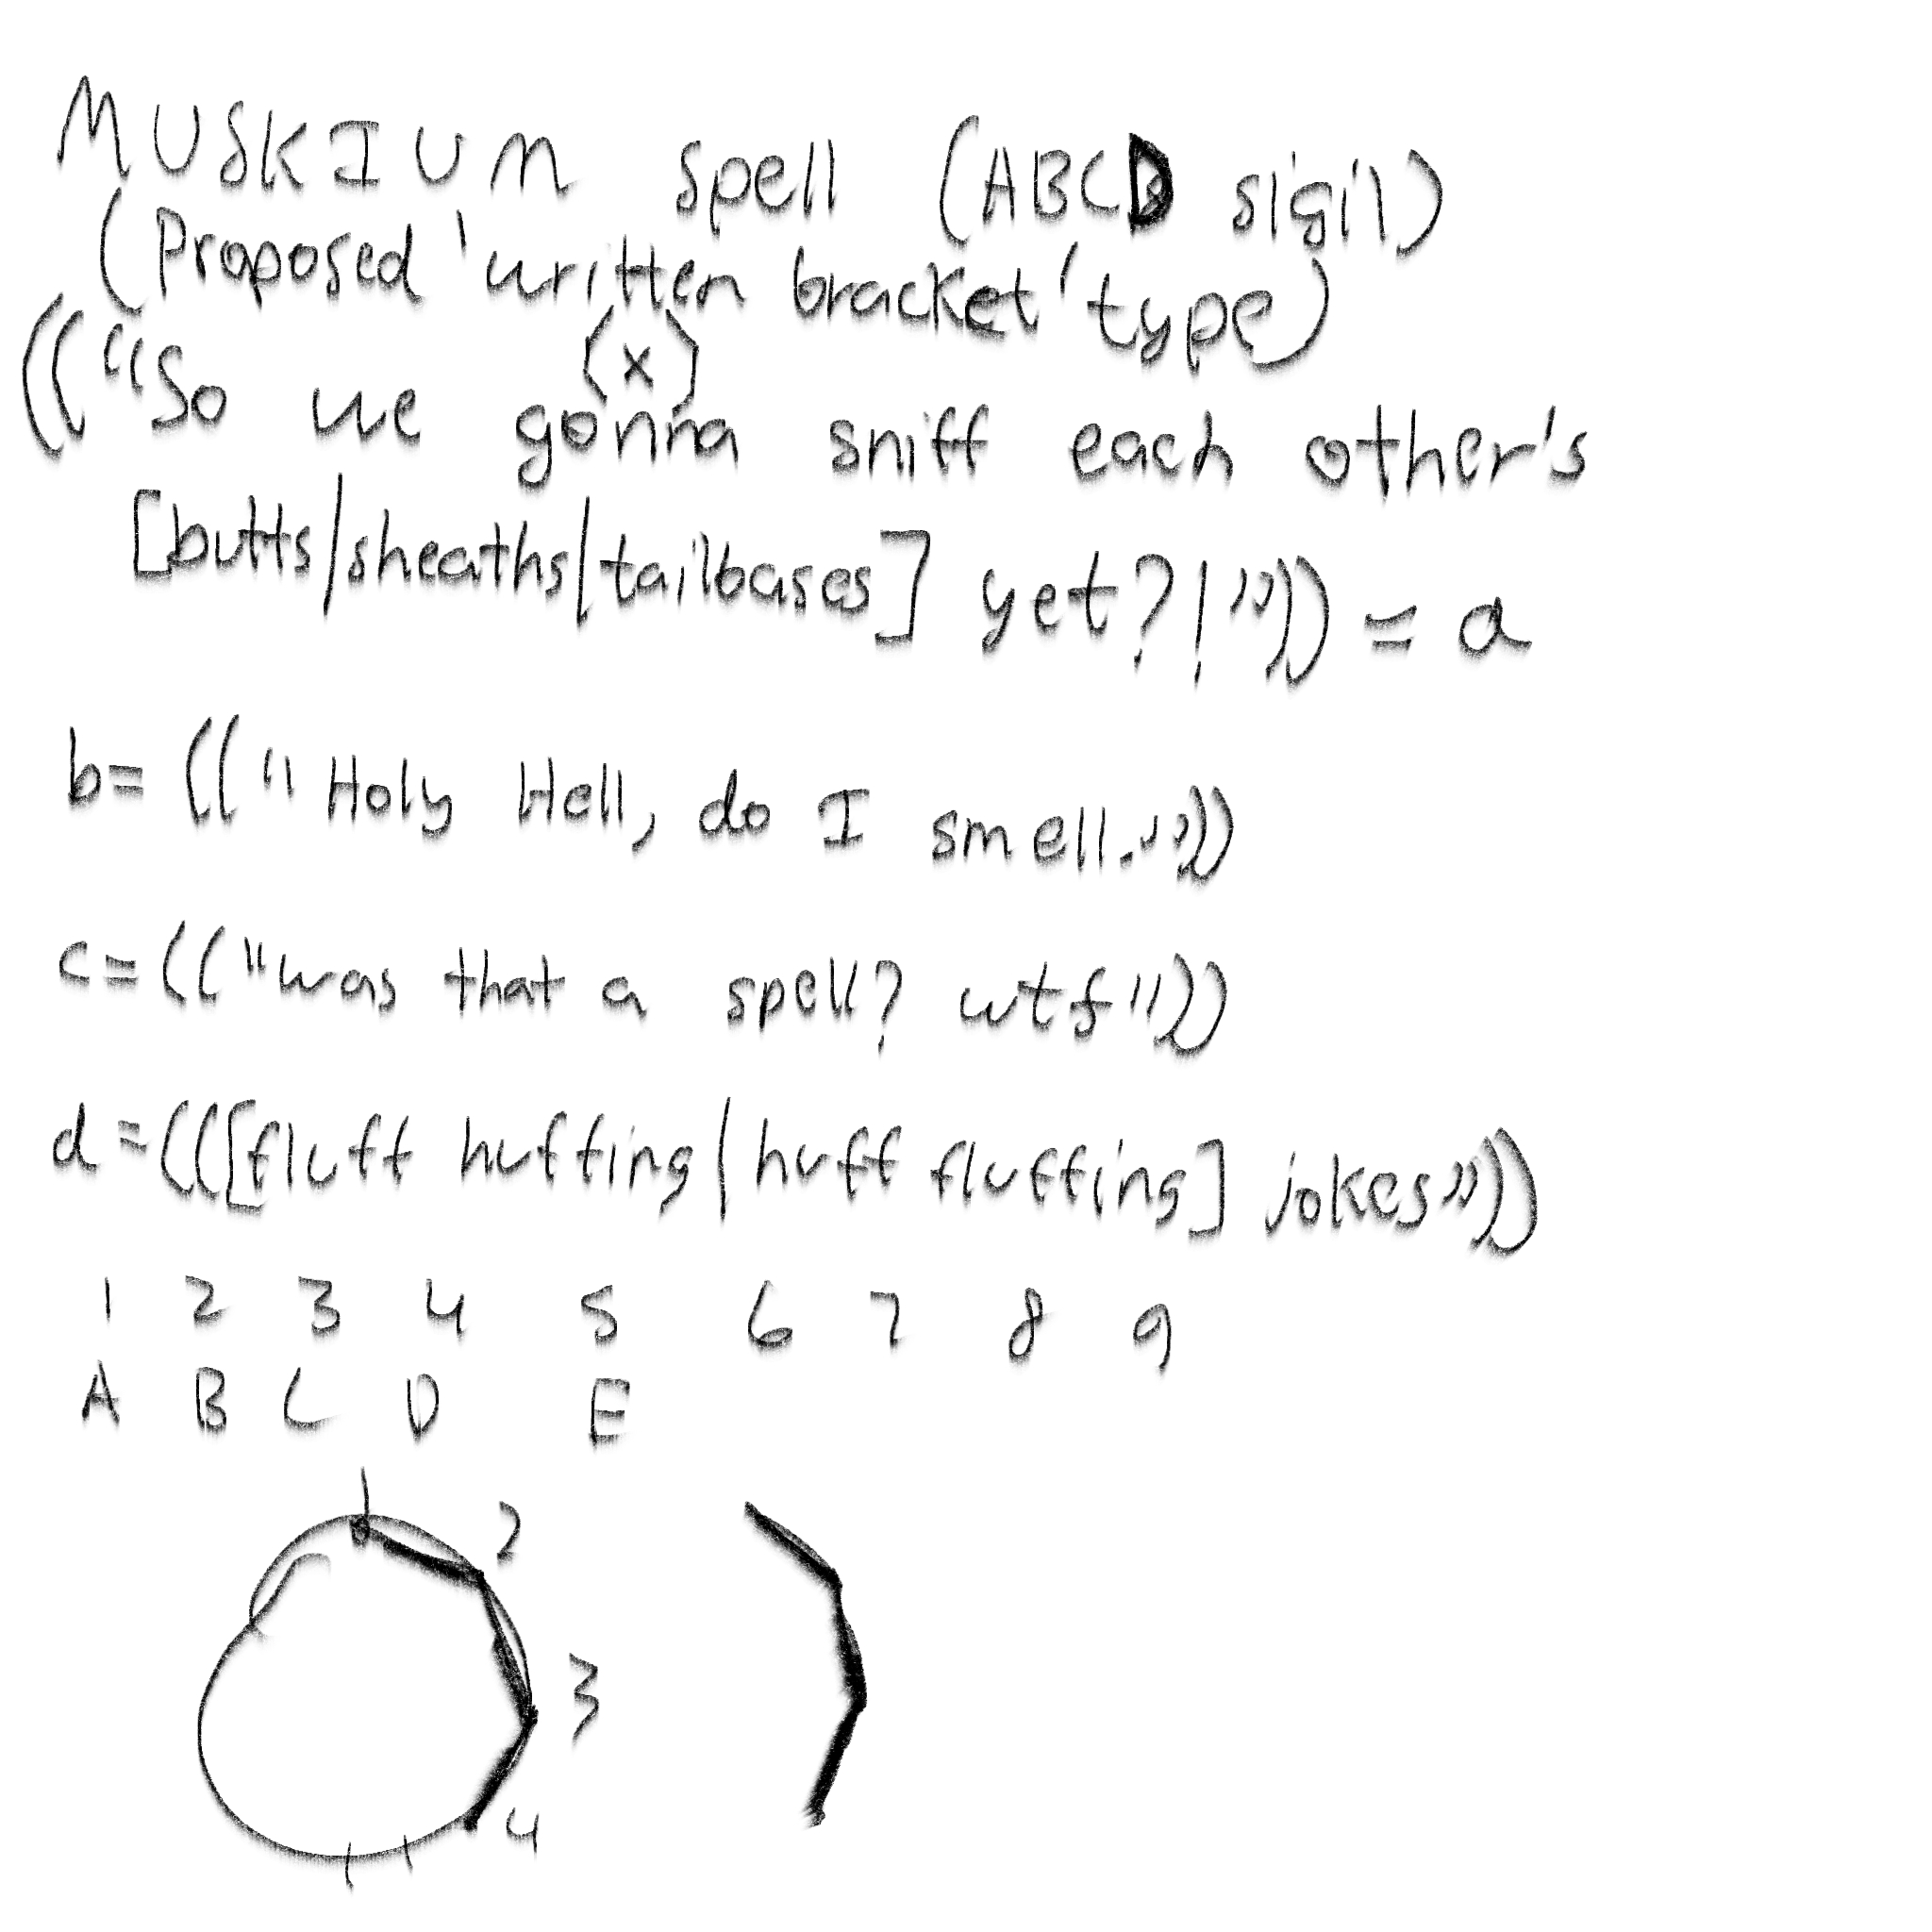 MUSKIUM spell (ABCD sigil)
(Proposed 'written bracket' type)
{x}
((“So we gonna sniff each other's
[butts/sheaths/tailbases] yet?!”)) = a
b= ((“Holy Hell, do I smell.”))
c=(("was that a spell? wtf"))
d=(([fluff huffing | huff fluffing] jokes”))
1 2 3 4 5 6 7 8 9
A B C D E
1
2
3
4